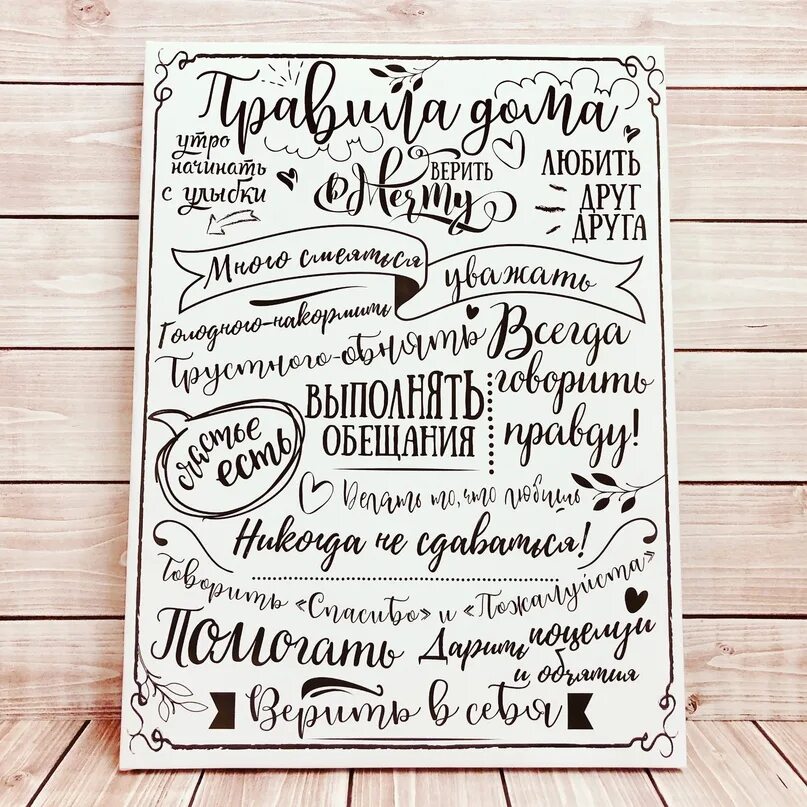 Правила дома
утро
начинать
с улыбки
верить
в Мечту
любить
друг
друга
Много смеяться
уважать
Голодного-накормить
Грустного-обнять
Всегда
говорить
правду!
Выполнять
обещания
Счастье
есть
Делать то, что любишь
Никогда не сдаваться!
Говорить «Спасибо» и «Пожалуйста»
Помогать
Дарить поцелуи
и обчятия
Верить в себя